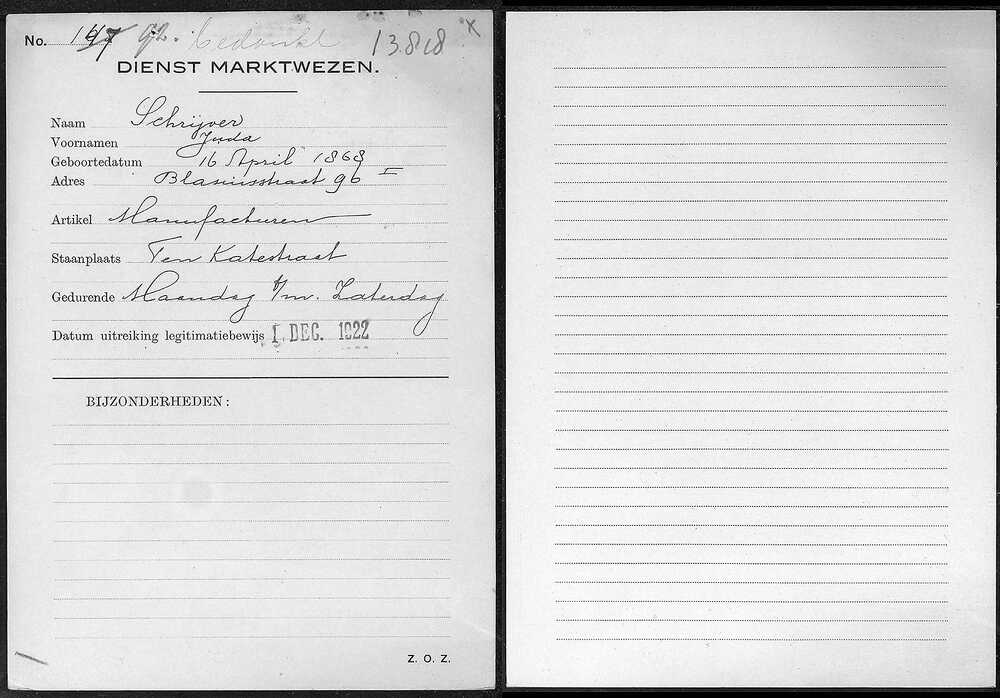 No. 92. bedankt 13818 x
DIENST MARKTWEZEN.
Naam Schrijver
Voornamen Juda
Geboortedatum 16 April 1868
Adres Blasiusstraat 96 I
Artikel Manufacturen
Staanplaats Ten Katestraat
Gedurende Maandag t/m. Zaterdag
Datum uitreiking legitimatiebewijs 1 DEC. 1922
BIJZONDERHEDEN:
Z. O. Z.